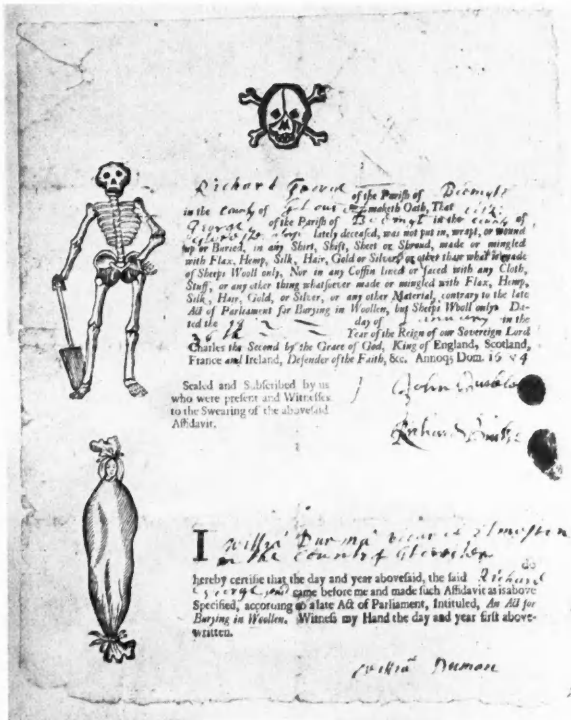 Richard of the Parish of
in the County of maketh Oath, That
of the Parish of in the County of
lately deceased, was not put in, wrapt, or wound
up or Buried, in any Shirt, Shift, Sheet or Shroud, made or mingled
with Flax, Hemp, Silk, Hair, Gold or Silver, or other than what is made
of Sheeps Wooll only, Nor in any Coffin lined or faced with any Cloth,
Stuff, or any other thing whatsoever made or mingled with Flax, Hemp,
Silk, Hair, Gold, or Silver, or any other Material, contrary to the late
Act of Parliament for Burying in Woollen, but Sheeps Wooll only. Da-
ted the day of in the
Year of the Reign of our Sovereign Lord
Charles the Second by the Grace of God, King of England, Scotland,
France and Ireland, Defender of the Faith, &c. Annoq; Dom. 1684
Sealed and Subscribed by us
who were present and Witnesses
to the Swearing of the abovesaid
Affidavit.
John
Richard
I Willia
in the County of
do
hereby certifie that the day and year abovesaid, the said Richard
George came before me and made such Affidavit as is above
Specified, according to a late Act of Parliament, Intituled, An Act for
Burying in Woollen. Witness my Hand the day and year first above-
written.
Willia